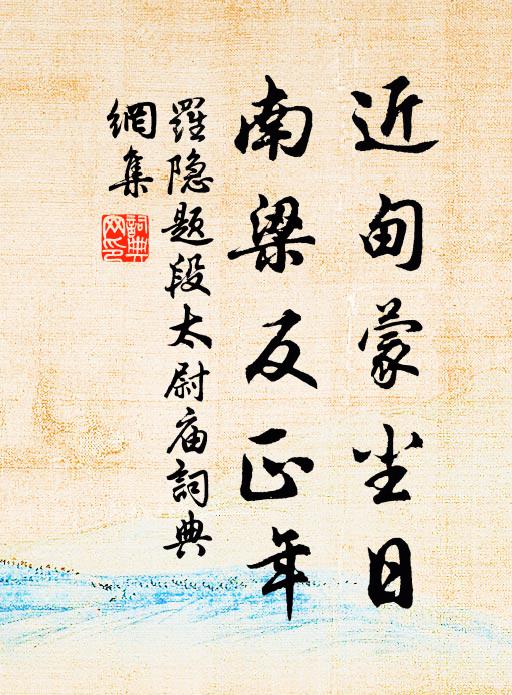 近甸蒙尘日
南梁反正年
羅隐题段太尉庙詞典
網集
詞典
网印